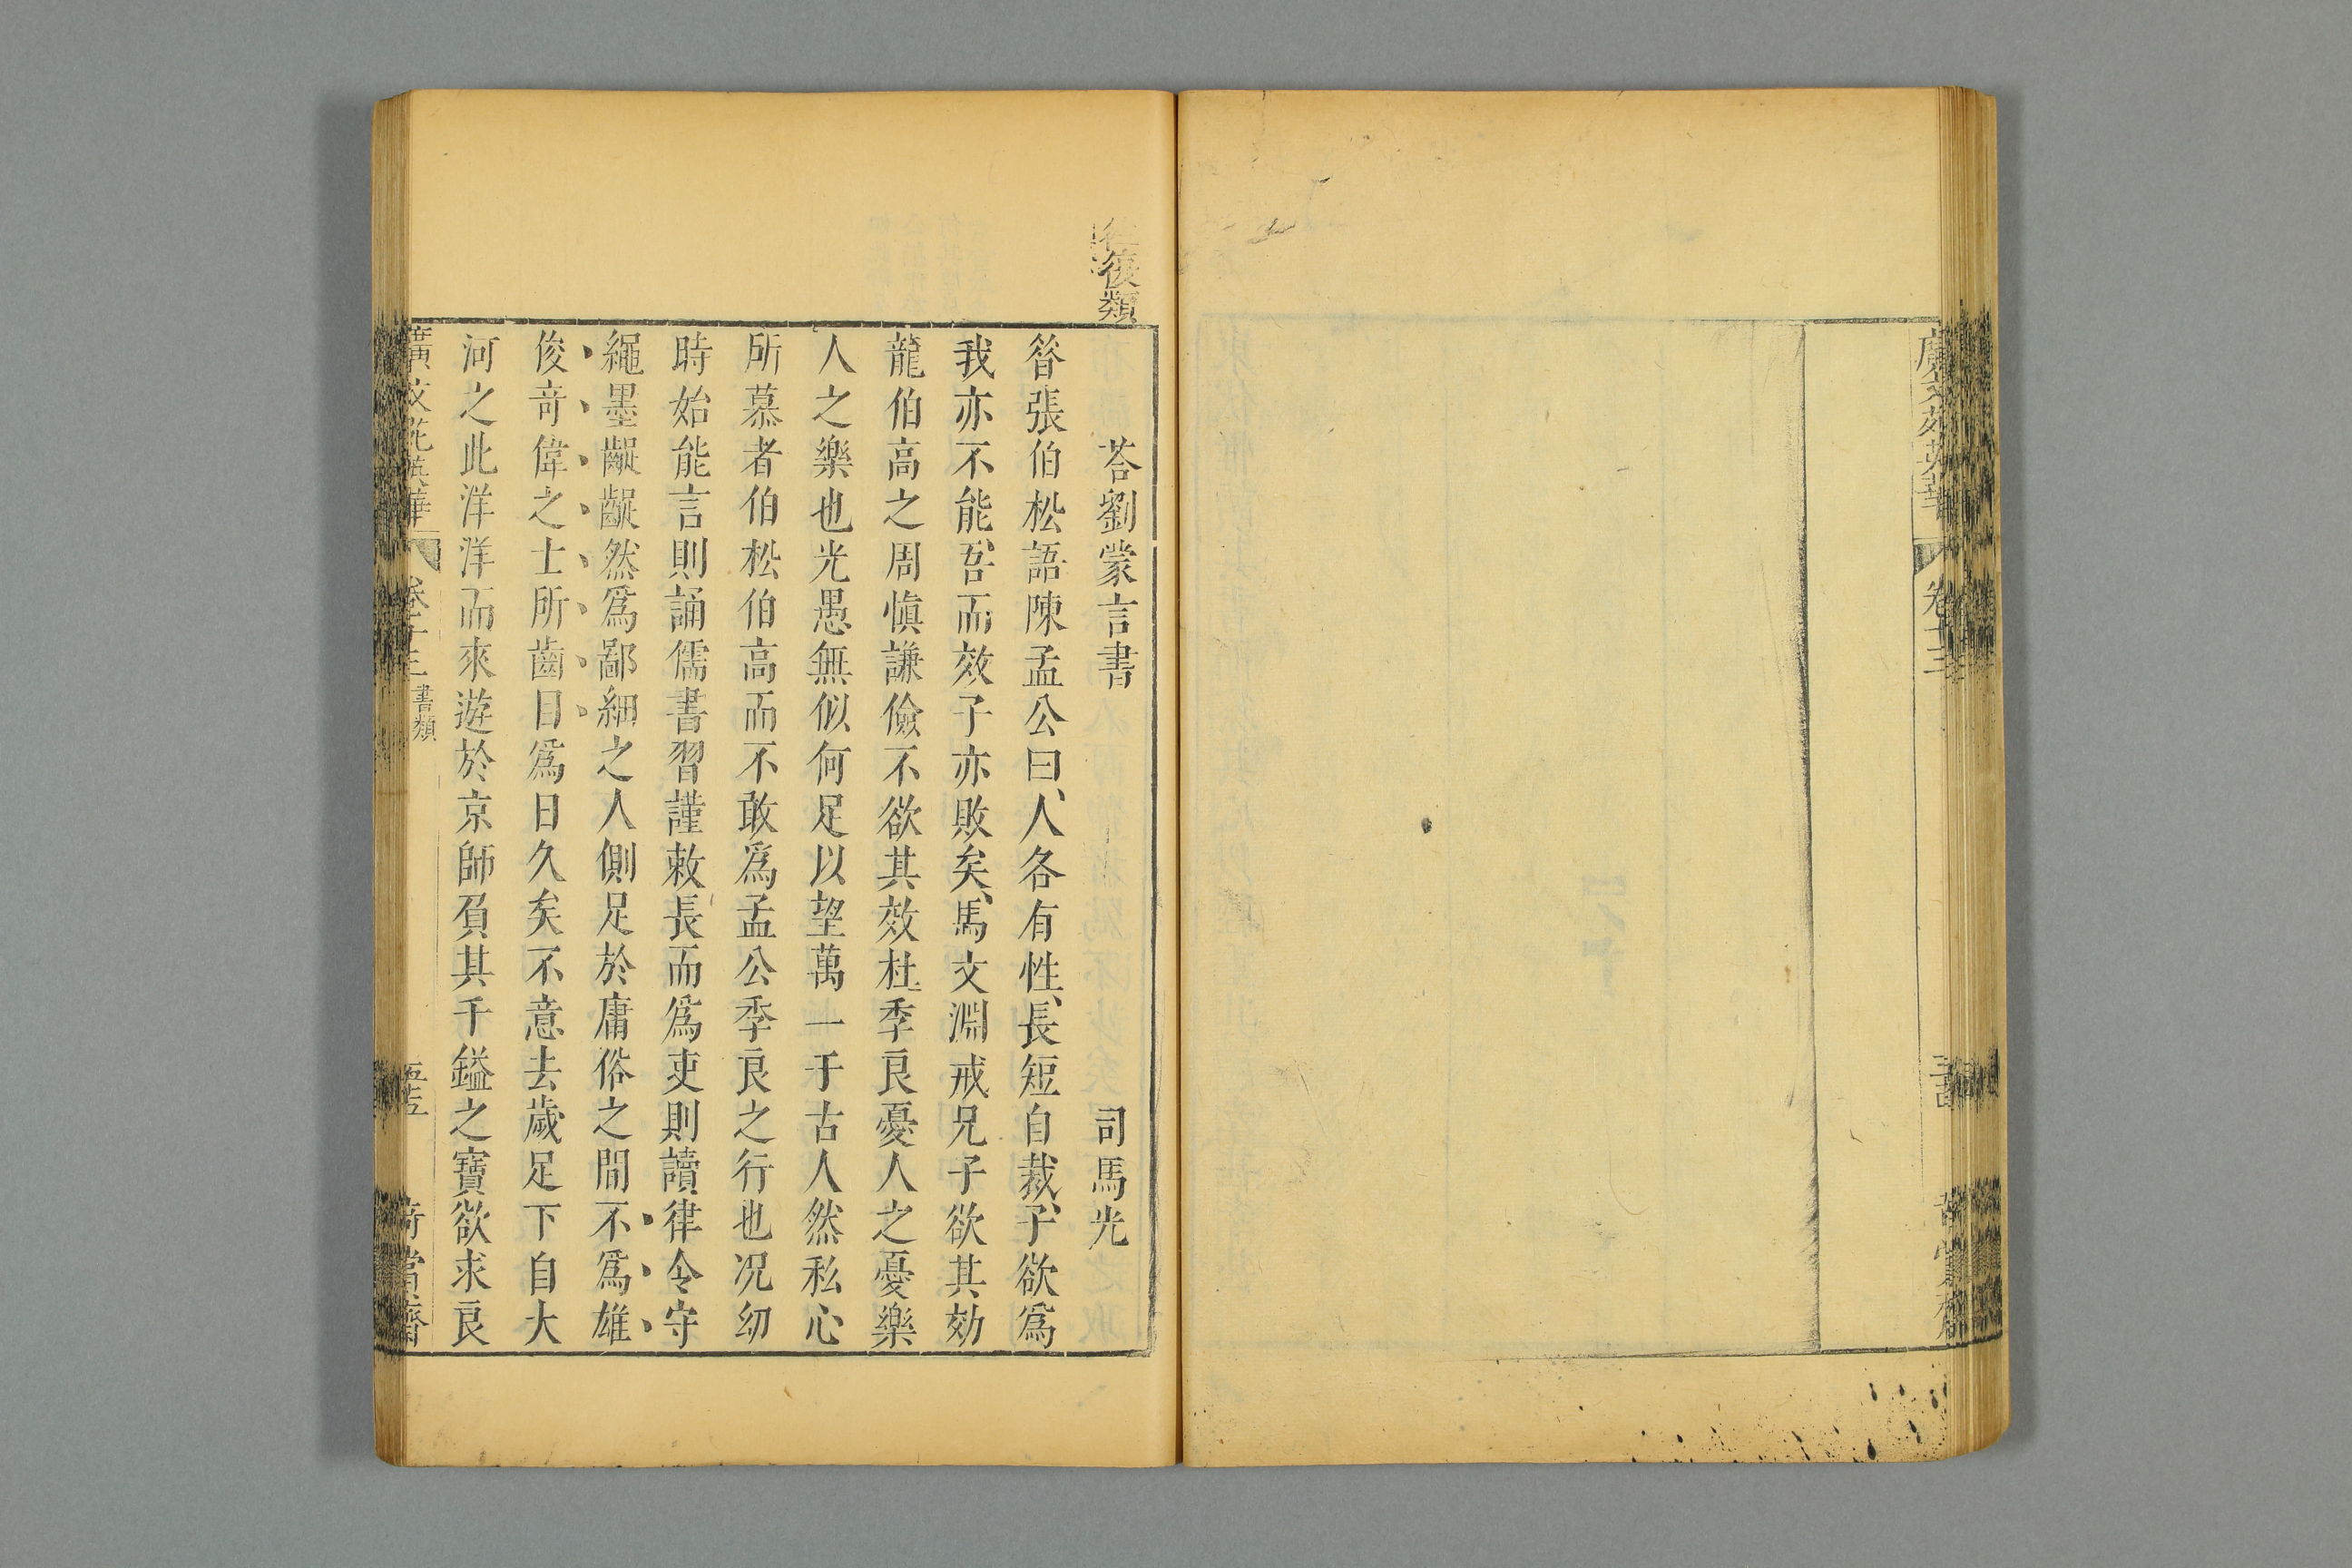 廣文苑英華
卷十三
復類
荅劉蒙言書
司馬光
昝張伯松語陳孟公曰、人各有性、長短自裁、子欲爲
我亦不能、吾而效子亦敗矣、馬文淵戒兄子欲其効
龍伯高之周慎謙儉不欲其效杜季良憂人之憂樂
人之樂也光愚無似何足以望萬一于古人然私心
所慕者伯松伯高而不敢爲孟公季良之行也况幼
時始能言則誦儒書習謹敕長而爲吏則讀律令守
繩墨齪齪然爲鄙細之人側足於庸俗之間不爲雄
俊竒偉之士所齒目爲日久矣不意去歲足下自大
河之北洋洋而來遊於京師負其千鎰之寶欲求良
廣文苑英華
卷十三
書類